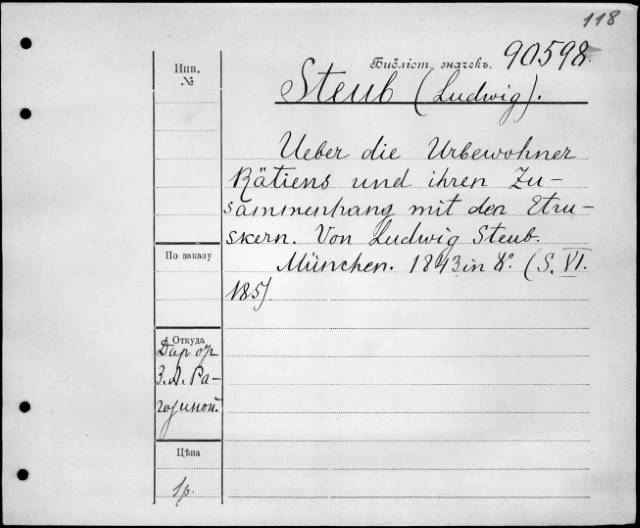 118
Инв.
№
Библіот. значекъ. 90598.
Steub (Ludwig).
Ueber die Urbewohner
Rätiens und ihren Zu-
sammenhang mit den Etru-
skern. Von Ludwig Steub.
München. 1843 in 8°. (S. VI.
185)
По заказу
Откуда
Дар. от
З. А. Ра-
гозиной.
Цѣна
1 р.